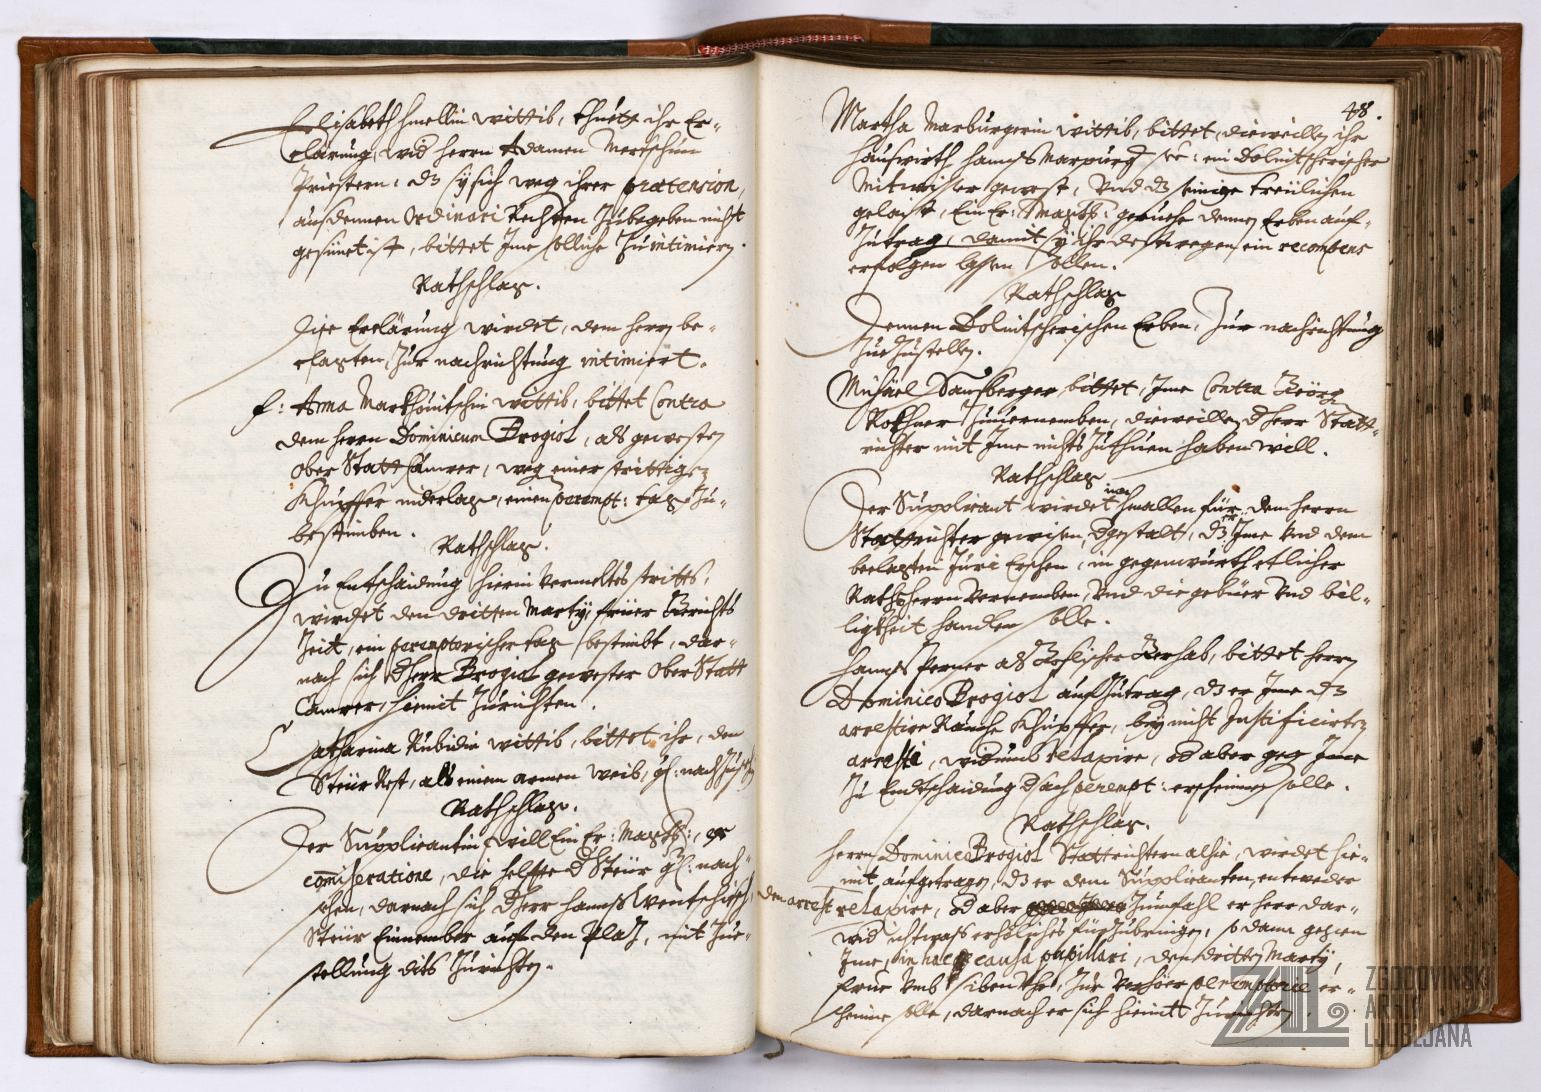 Elisabeth hmellin wittib, thuett ihr Er-
clärung, wid herrn Adamen Mertschun
Priestern, dz sÿ sich weg ihrer prætension,
aus dennen Ordinari Rechten zubegeben nicht
gesünet ist, bittet Ime solliche zuintimiern.
Rathschlag.
Dise Erclärung wirdet, dem herrn be-
clagten, zur nachrichtung intimiert.
f: Anna Markhouitschin wittib, bittet Contra
dem herrn Dominicum Brogiol, als gewesten
Ober Statt Camrer, weg einer strittigen
Khupffer niderlag, einen perempt: tag zu-
bestimben.
Rathschlag.
Zu Entschaidung hierin vermeltes stritts,
wirdet den dritten Martÿ, früer Gerichts
Zeit, ein peremptorischer tag bestimbt, dar-
nach sich Dherr Brogiol gewester Ober Statt
Camrer, hiemit zurichten.
Catharina Rubidin wittib, bittet ihr, den
Steür Rest, als einem armen weib, gl: nachzusehen
Rathschlag.
Der Supplicantin will Ein Er: Magstt: ex
comiseratione, die helffte D Steür gl: nach-
sehen, darnach sich Dherr hannss Wentschitsch,
Steür Einnember auf den Plaz, mit zue-
stellung dits zurichten.
48.
Martha Marburgerin wittib, bittet, dieweillen ihr
hauswirth hannss Marpurg see: ein Dolnitscherischer
Mitweiser gewest, vnd dz seinige treulichen
gelaist, Ein Er: Magstt: geruehe dennen Erben auf-
zutrag, damit sÿ ihr desstwegen ein recompens
erfolgen lassen sollen.
Rathschlag
Dennen Dolnitscherischen Erben, zur nachrichtung
zuezustellen.
Michäel Dausberger bittet, Ime Contra Geörg
Rothner zuuernemben, dieweillen Dherr Statt-
richter mit Ime nichts zuthuen haben will.
Rathschlag
Der Supplicant wirdet nochmallen für dem herrn
Stattrichter gewisen, Dgestalt, dz Er Ime vnd dem
beclagten Juri Erschen, in gegenwürth etlicher
Rathsherrn vernemben, vnd die gebüer vnd bil-
ligkheit handlen solle.
hannss ferner als Goslischer Gerhab, bittet herrn
Dominico Brogiol aufzutrag, dz er Ime dz
arrestirte Rauche Khupffer, beÿ nicht Justificirten
arresti, widumb relaxire, od aber geg Ime
zu Endtschaidung Dsach perempt: erscheinen solle.
Rathschlag.
herrn Dominico Brogiol Stattrichtern alhie, wirdet hie-
mit, aufgetragen, dz er dem Supplicanten, entweder
den arrest relaxire, od aber Jimfahl er herr dar-
wid ichtwass erhöbliches fürzubringen, so dann gegen
Ime, in hac causa pupillari, den dritten Martÿ,
frue vmb siben Vhr, zur Verhöer peremptorie er-
scheine solle, darnach er sich hiemit zurichten.
ZGODOVINSKI
ARHIV
LJUBLJANA